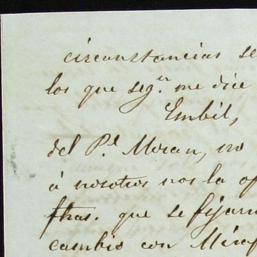 circunstancias se
los que segn. me dice
Embil,
del Pl. Moran, no
á nosotros nos la
ftras. que se fijar
cambio con